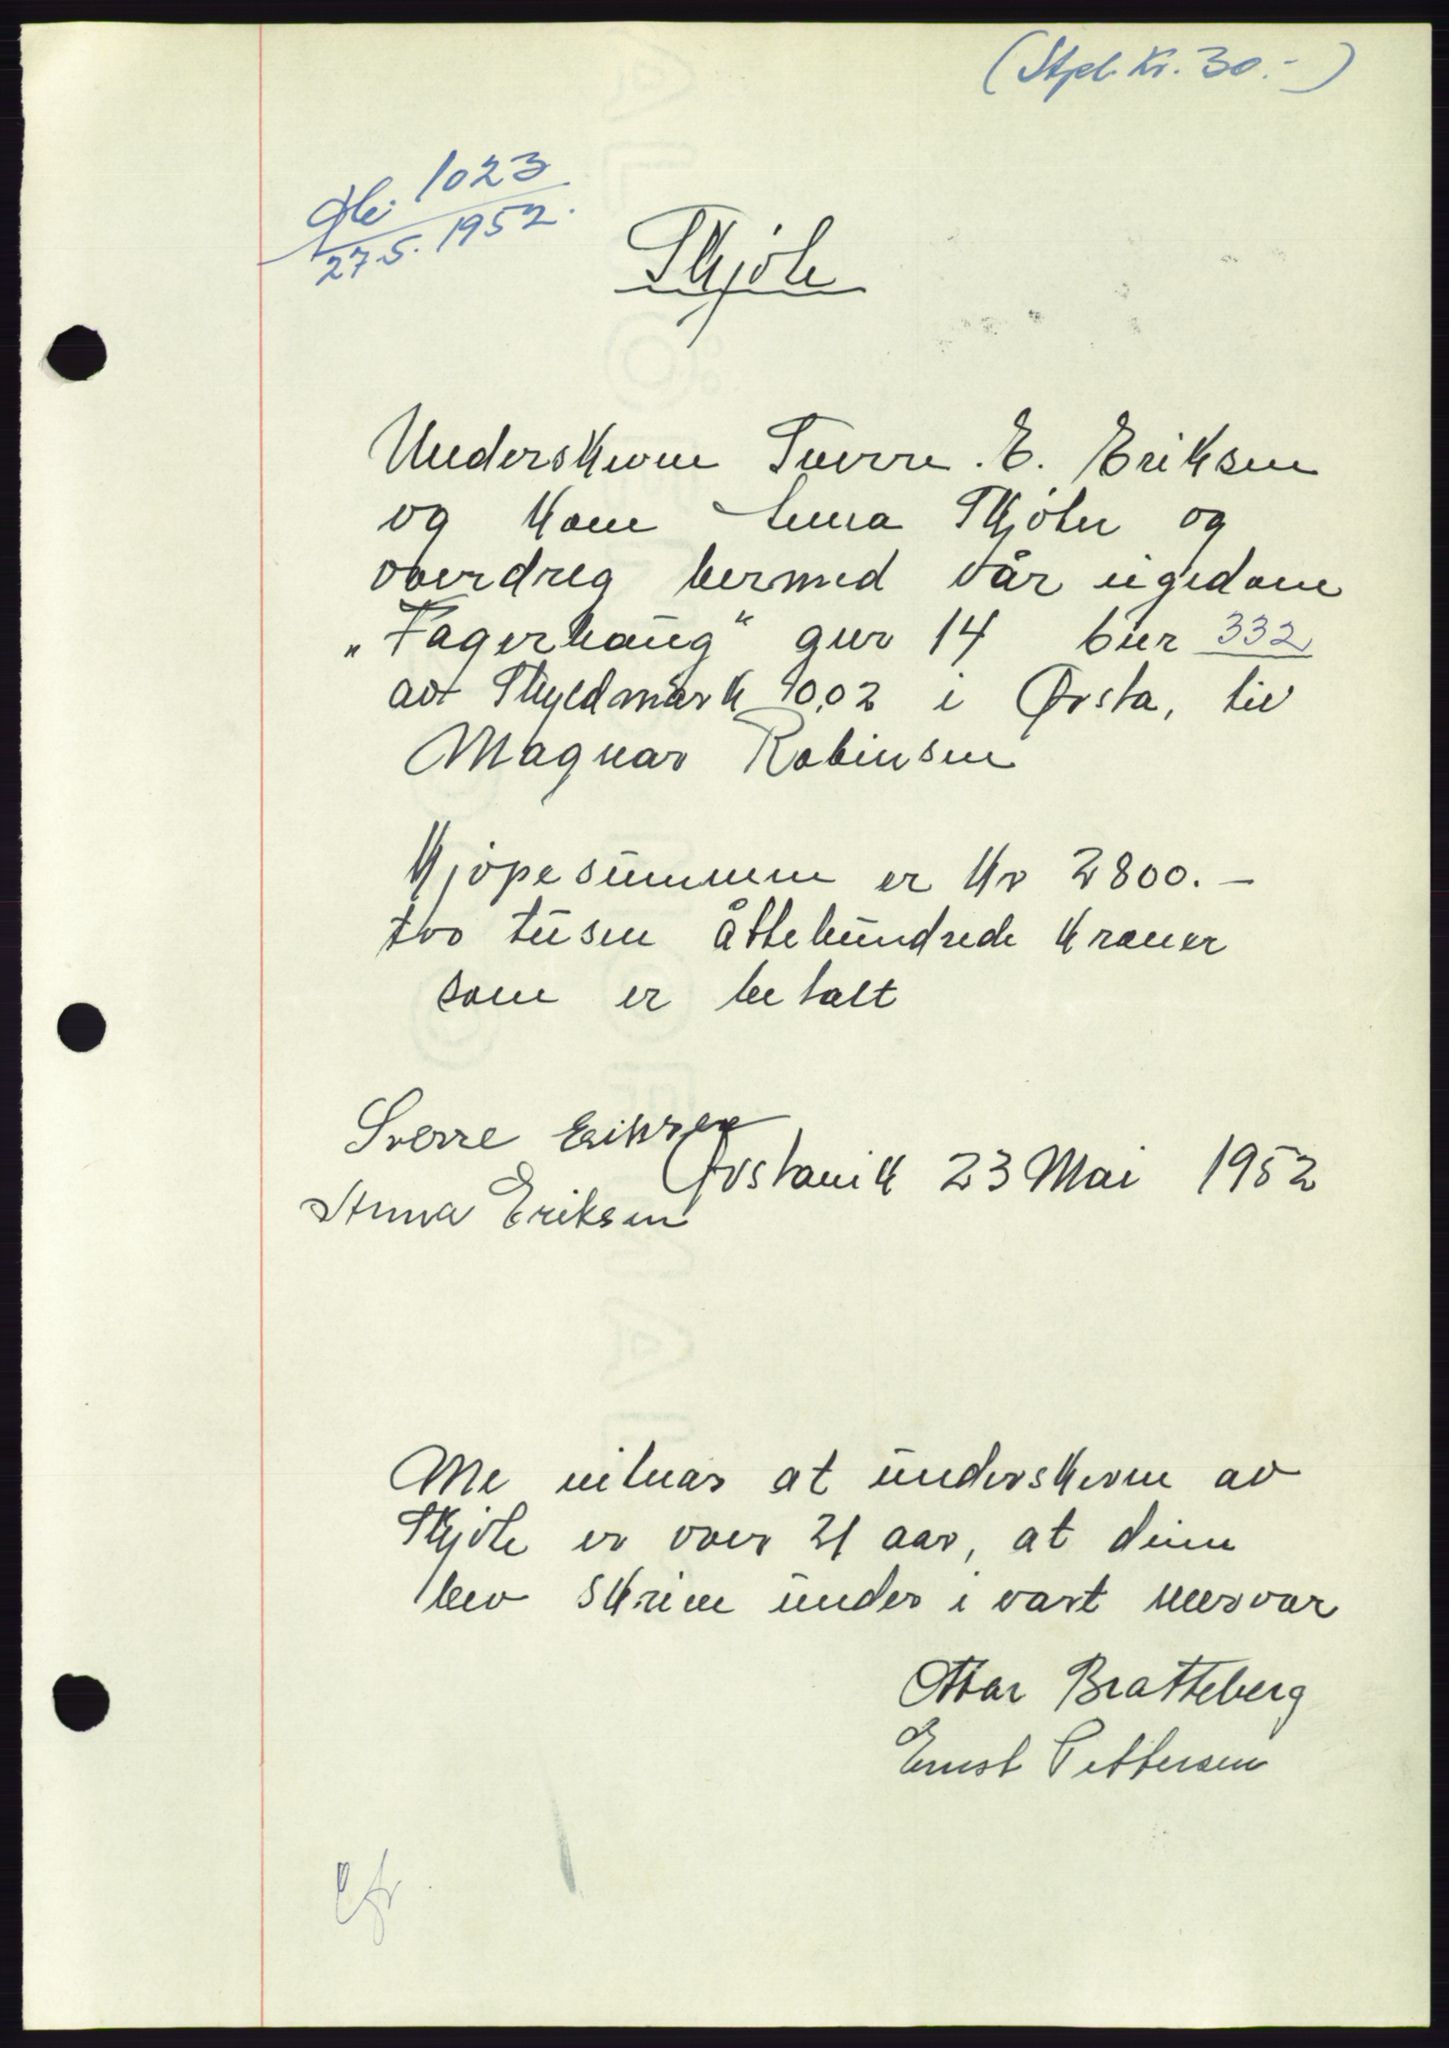 (Stpl. Kr. 30.-)
1023
27.5. 1952.
Skjöte
Underskrivne Sverre. E. Eriksen
og Kone Anna Skjöter og
overdreg hermed vår eigedom
„Fagerhaug“ gnr 14 bnr 332
av Skyldmark 0,02 i Ørsta, til
Magnar Robinsen
Kjöpesummen er Kr 2800.-
two tusen åttehundrede Kroner
som er betalt
Sverre Eriksen
Ørstavik 23 Mai 1952
Anna Eriksen
Me vitnar at underskrivne av
Skjöte er over 21 aar, at deim
hev skrive under i vart nervær
Ottar Bratteberg
Ernst Pettersen